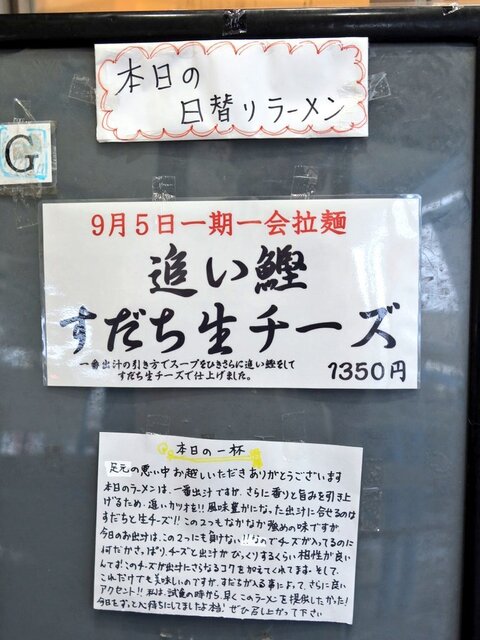 本日の
日替りラーメン
G
9月5日一期一会拉麺
追い鰹
すだち生チーズ
一番出汁の引き方でスープをひきさらに追い鰹をして
すだち生チーズで仕上げました。
1350円
本日の一杯
足元の悪い中お越しいただきありがとうございます
本日のラーメンは、一番出汁ですが、さらに香りと旨みを引き上
げるため、追いカツオを!!風味豊かになった出汁に合せるのは
すだちと生チーズ!!この2つもなかなか強めの味ですが
今日のお出汁は、この2つにも負けない!!なのでチーズが入ってるのに
何だかさっぱり、チーズと出汁がびっくりするくらい相性が良い
んです、このチーズが出汁にさらなるコクを加えてくれてます。そして、
これだけでも美味しいのですが、すだちが入る事によって、さらに良い
アクセント!!私は、試食の時から、早くこのラーメンを提供したかった!
今日をずっと心待ちにしてましたよ本当!ぜひ召し上がって下さい